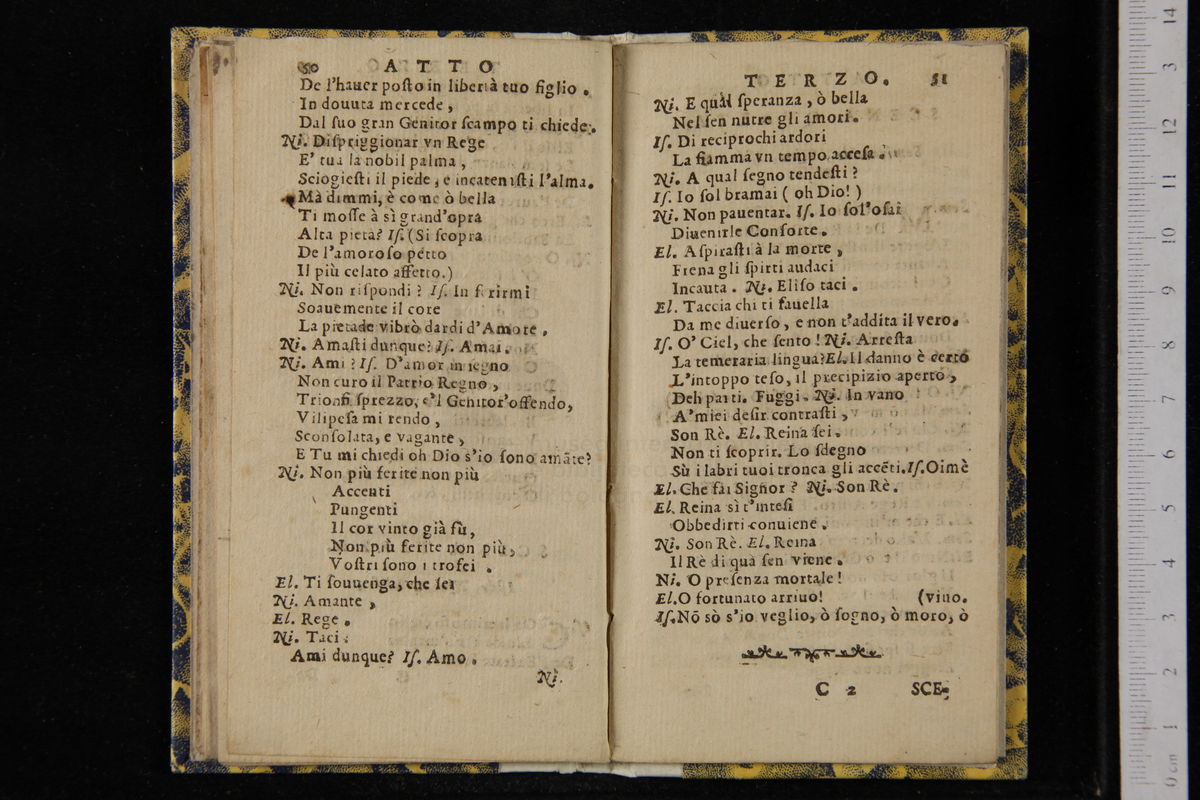 50 ATTO
De l'hauer posto in libertà tuo figlio.
In douuta mercede,
Dal suo gran Genitor scampo ti chiede.
Ni. Dispriggionar vn Rege
E' tua la nobil palma,
Sciogiesti il piede, e incatenasti l'alma.
Mà dimmi, e come ò bella
Ti mosse à sì grand'opra
Alta pietà? Is. (Si scopra
De l'amoroso petto
Il più celato affetto.)
Ni. Non rispondi? Is. In ferirmi
Soauemente il core
La pietade vibrò dardi d'Amore.
Ni. Amasti dunque? Is. Amai.
Ni. Ami? Is. D'amor in segno
Non curo il Patrio Regno,
Trionfi sprezzo, e'l Genitor'offendo,
Vilipesa mi rendo,
Sconsolata, e vagante,
E Tu mi chiedi oh Dio s'io sono amãte?
Ni. Non più ferite non più
Accenti
Pungenti
Il cor vinto già fù,
Non più ferite non più,
Vostri sono i trofei.
El. Ti souuenga, che sei
Ni. Amante,
El. Rege.
Ni. Taci:
Ami dunque? Is. Amo.
Ni.
TERZO. 51
Ni. E quàl speranza, ò bella
Nel sen nutre gli amori.
Is. Di reciprochi ardori
La fiamma vn tempo accesa.
Ni. A qual segno tendesti?
Is. Io sol bramai (oh Dio!)
Ni. Non pauentar. Is. Io sol'osai
Diuenirle Consorte.
El. Aspirasti à la morte,
Frena gli spirti audaci
Incauta. Ni. Eliso taci.
El. Taccia chi ti fauella
Da me diuerso, e non t'addita il vero.
Is. O' Ciel, che sento! Ni. Arresta
La temeraria lingua? El. Il danno è certo
L'intoppo teso, il precipizio aperto,
Deh parti. Fuggi. Ni. In vano
A'miei desir contrasti,
Son Rè. El. Reina sei.
Non ti scoprir. Lo sdegno
Sù i labri tuoi tronca gli accẽti. Is. Oimè
El. Che fai Signor? Ni. Son Rè.
El. Reina sì t'intesi
Obbedirti conuiene.
Ni. Son Rè. El. Reina
Il Rè di quà sen viene.
Ni. O presenza mortale!
El. O fortunato arriuo! (viuo.
Is. Nõ sò s'io veglio, ò sogno, ò moro, ò
C 2 SCE-